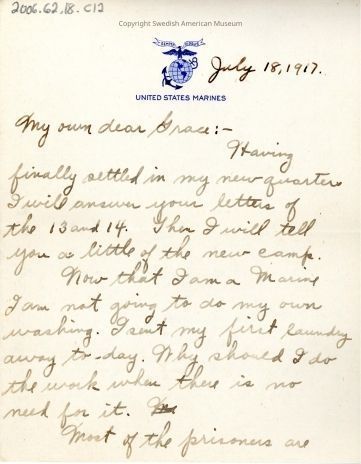 2006.62.18.C12
Copyright Swedish American Museum
SEMPER FIDELIS
July 18, 1917.
UNITED STATES MARINES
My own dear Grace:-
Having
finally settled in my new quarters
I will answer your letters of
the 13 and 14. Then I will tell
you a little of the new camp.
Now that I am a Marine
I am not going to do my own
washing. I sent my first laundry
away to-day. Why should I do
the work when there is no
need for it.
Most of the prisoners are